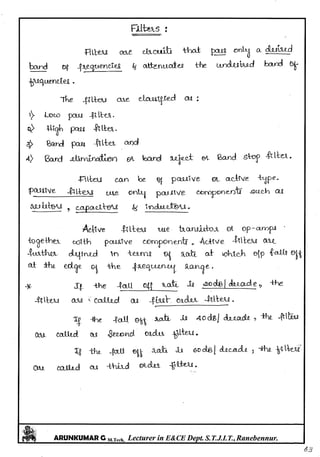 Filters :
Filters are circuits that pass only a desired
band of frequencies & attenuates the undesired band of
frequencies.
The filters are classified as :
1) Low pass filter.
2) High pass filter.
3) Band pass filter and
4) Band elimination or band reject or Band stop filter.
Filters can be of passive or active type.
passive filters use only passive components such as
resistors, capacitors & inductors.
Active filters use transistors or op-amps
together with passive components. Active filters are
further defined in terms of rate at which o/p falls off
at the edge of the frequency range.
* If the fall off rate is 20dB/decade, the
filters are called as first order filters.
If the fall off rate is 40dB/decade, the filters
are called as second order filters.
If the fall off rate is 60dB/decade, the filters
are called as third order filters.
ARUNKUMAR G M.Tech, Lecturer in E&CE Dept. S.T.J.I.T., Ranebennur.
63